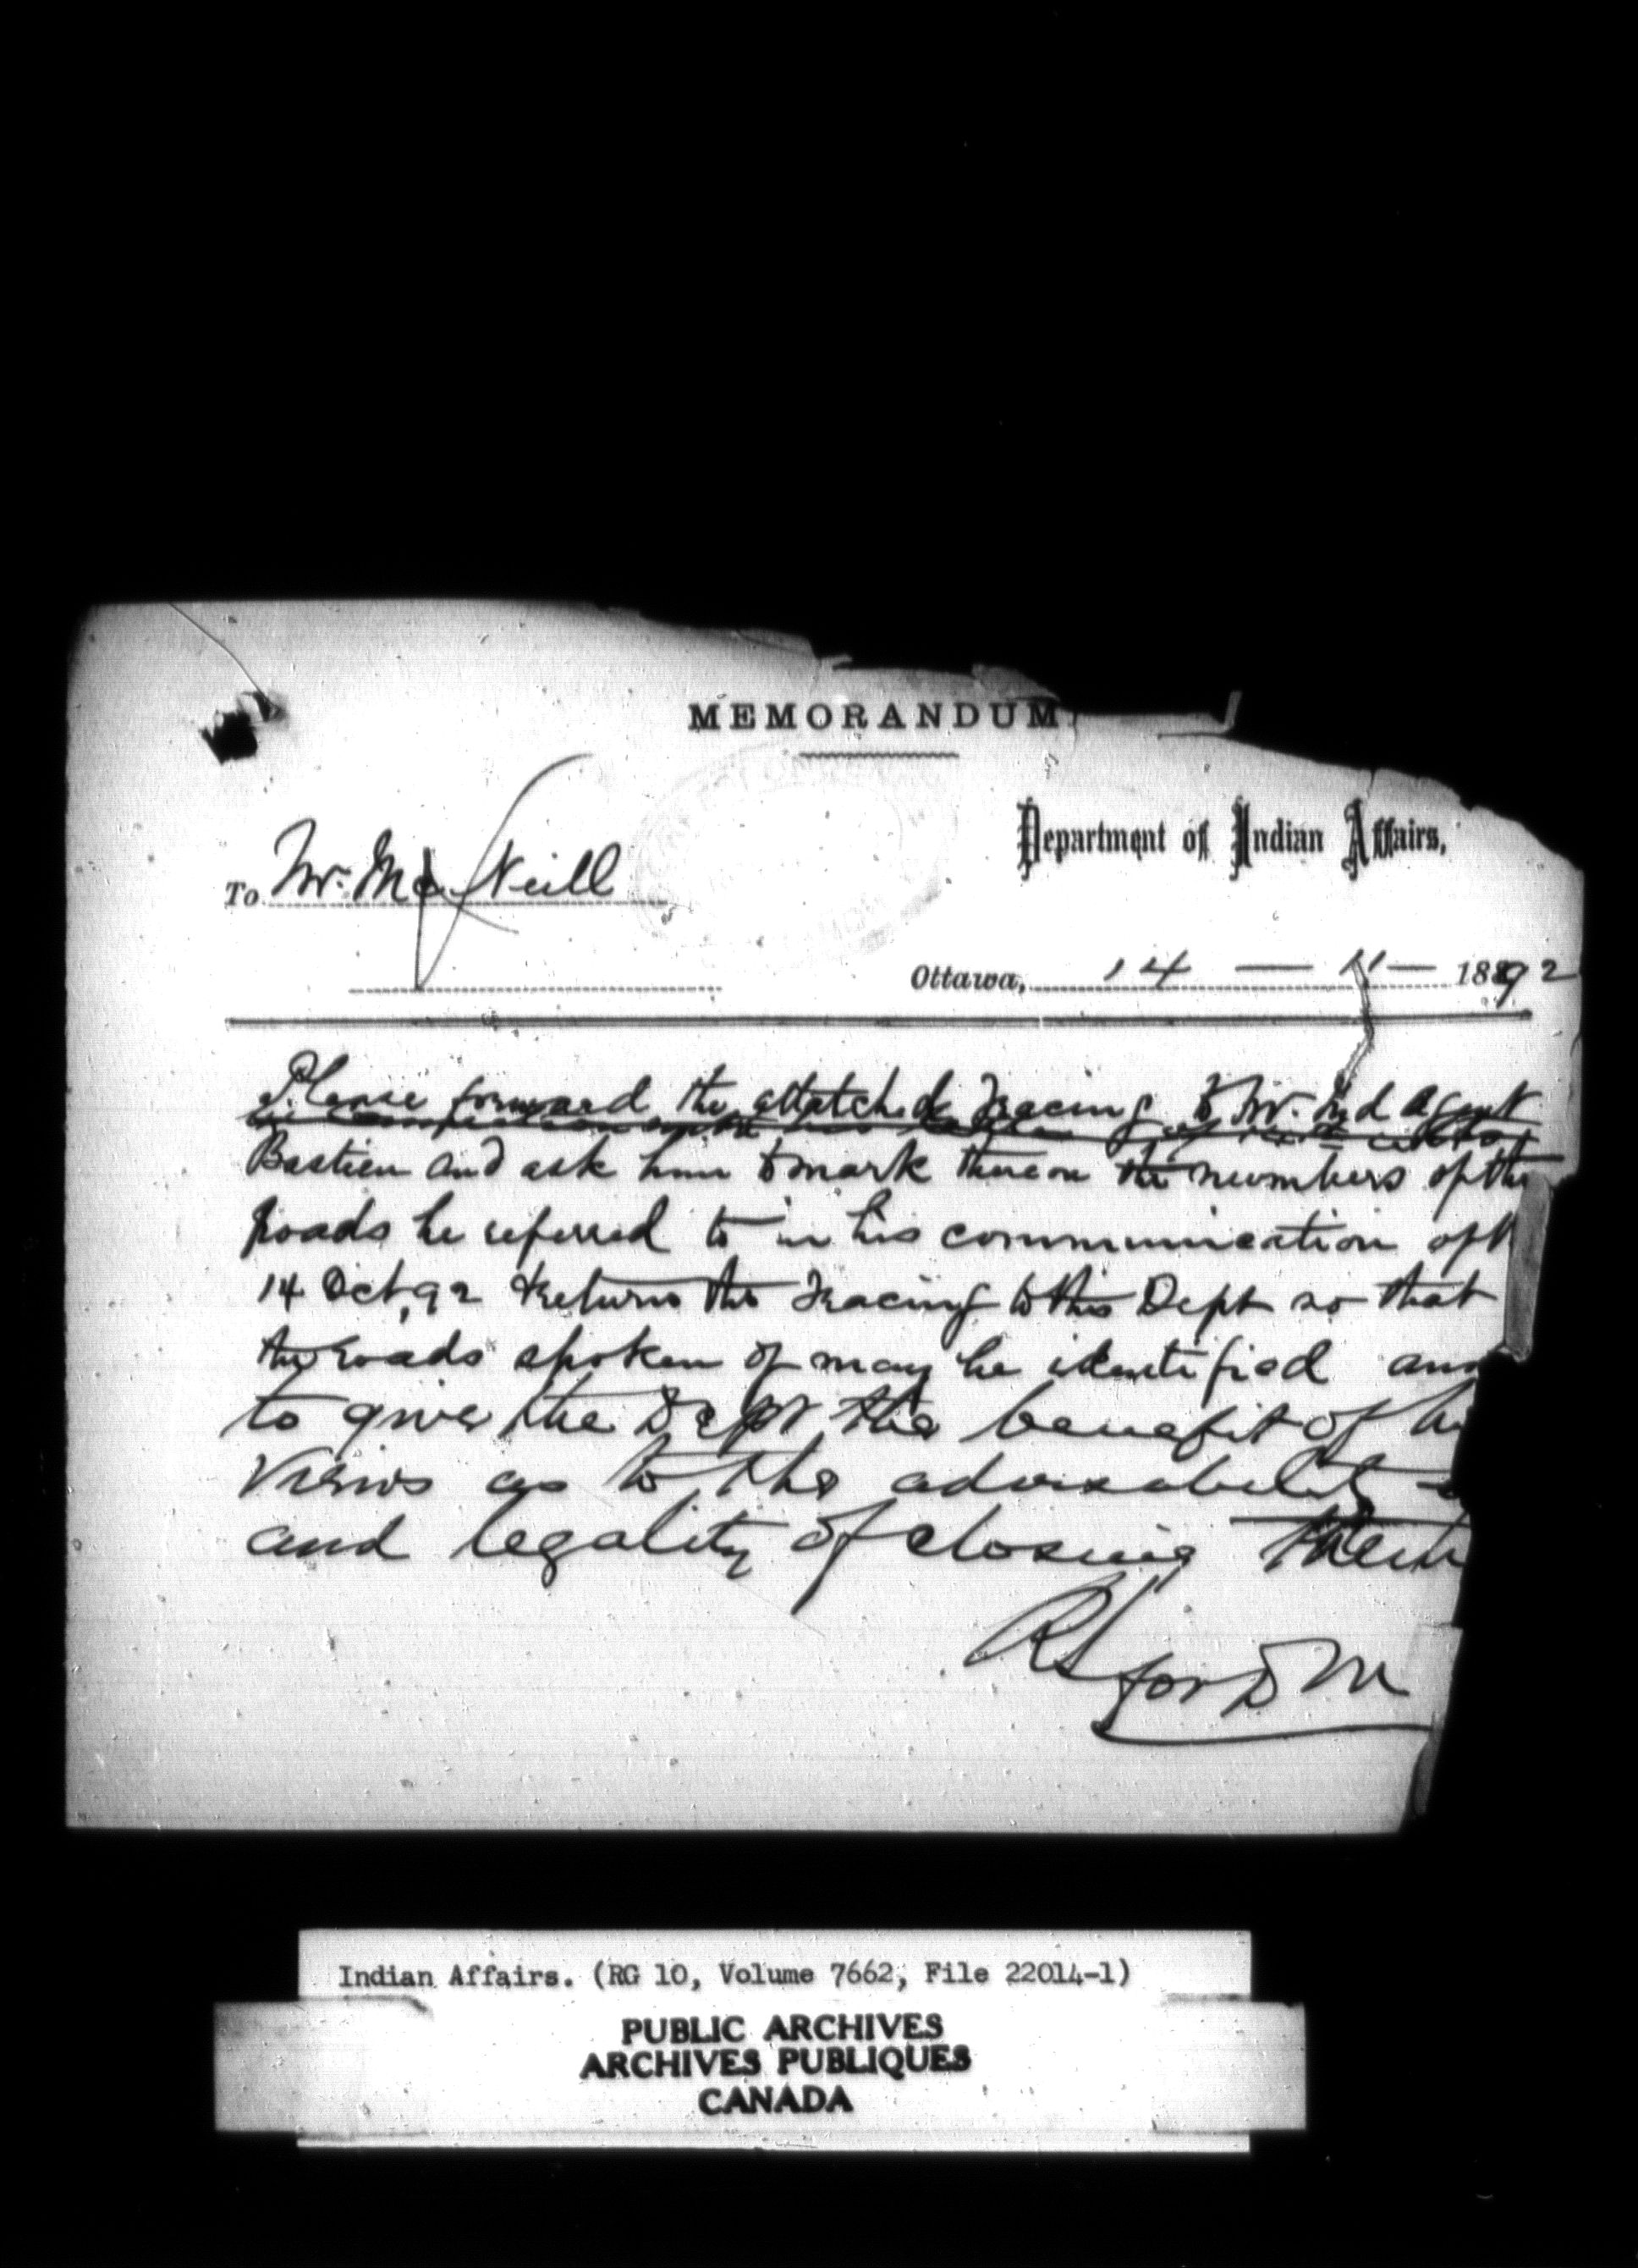 MEMORANDUM
Department of Indian Affairs,
To Mr. McNeill
Ottawa, 14 — 11 — 1892
Please forward the attatched Tracing to Mr. Ind Agent
Bastien and ask him to mark thereon the numbers of the
roads he referred to in his communication of
14 Oct, 92 & return the Tracing to this Dept so that
the roads spoken of may be identified and
to give the Dept the benefit of hi
views as to the advisability
and legality of closing them
for D M
Indian Affairs. (RG 10, Volume 7662, File 22014-1)
PUBLIC ARCHIVES
ARCHIVES PUBLIQUES
CANADA